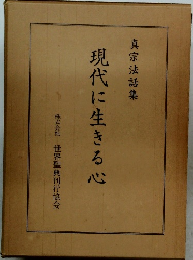 真宗法話集
現代に生きる心
株式会社 世界聖典刊行協会